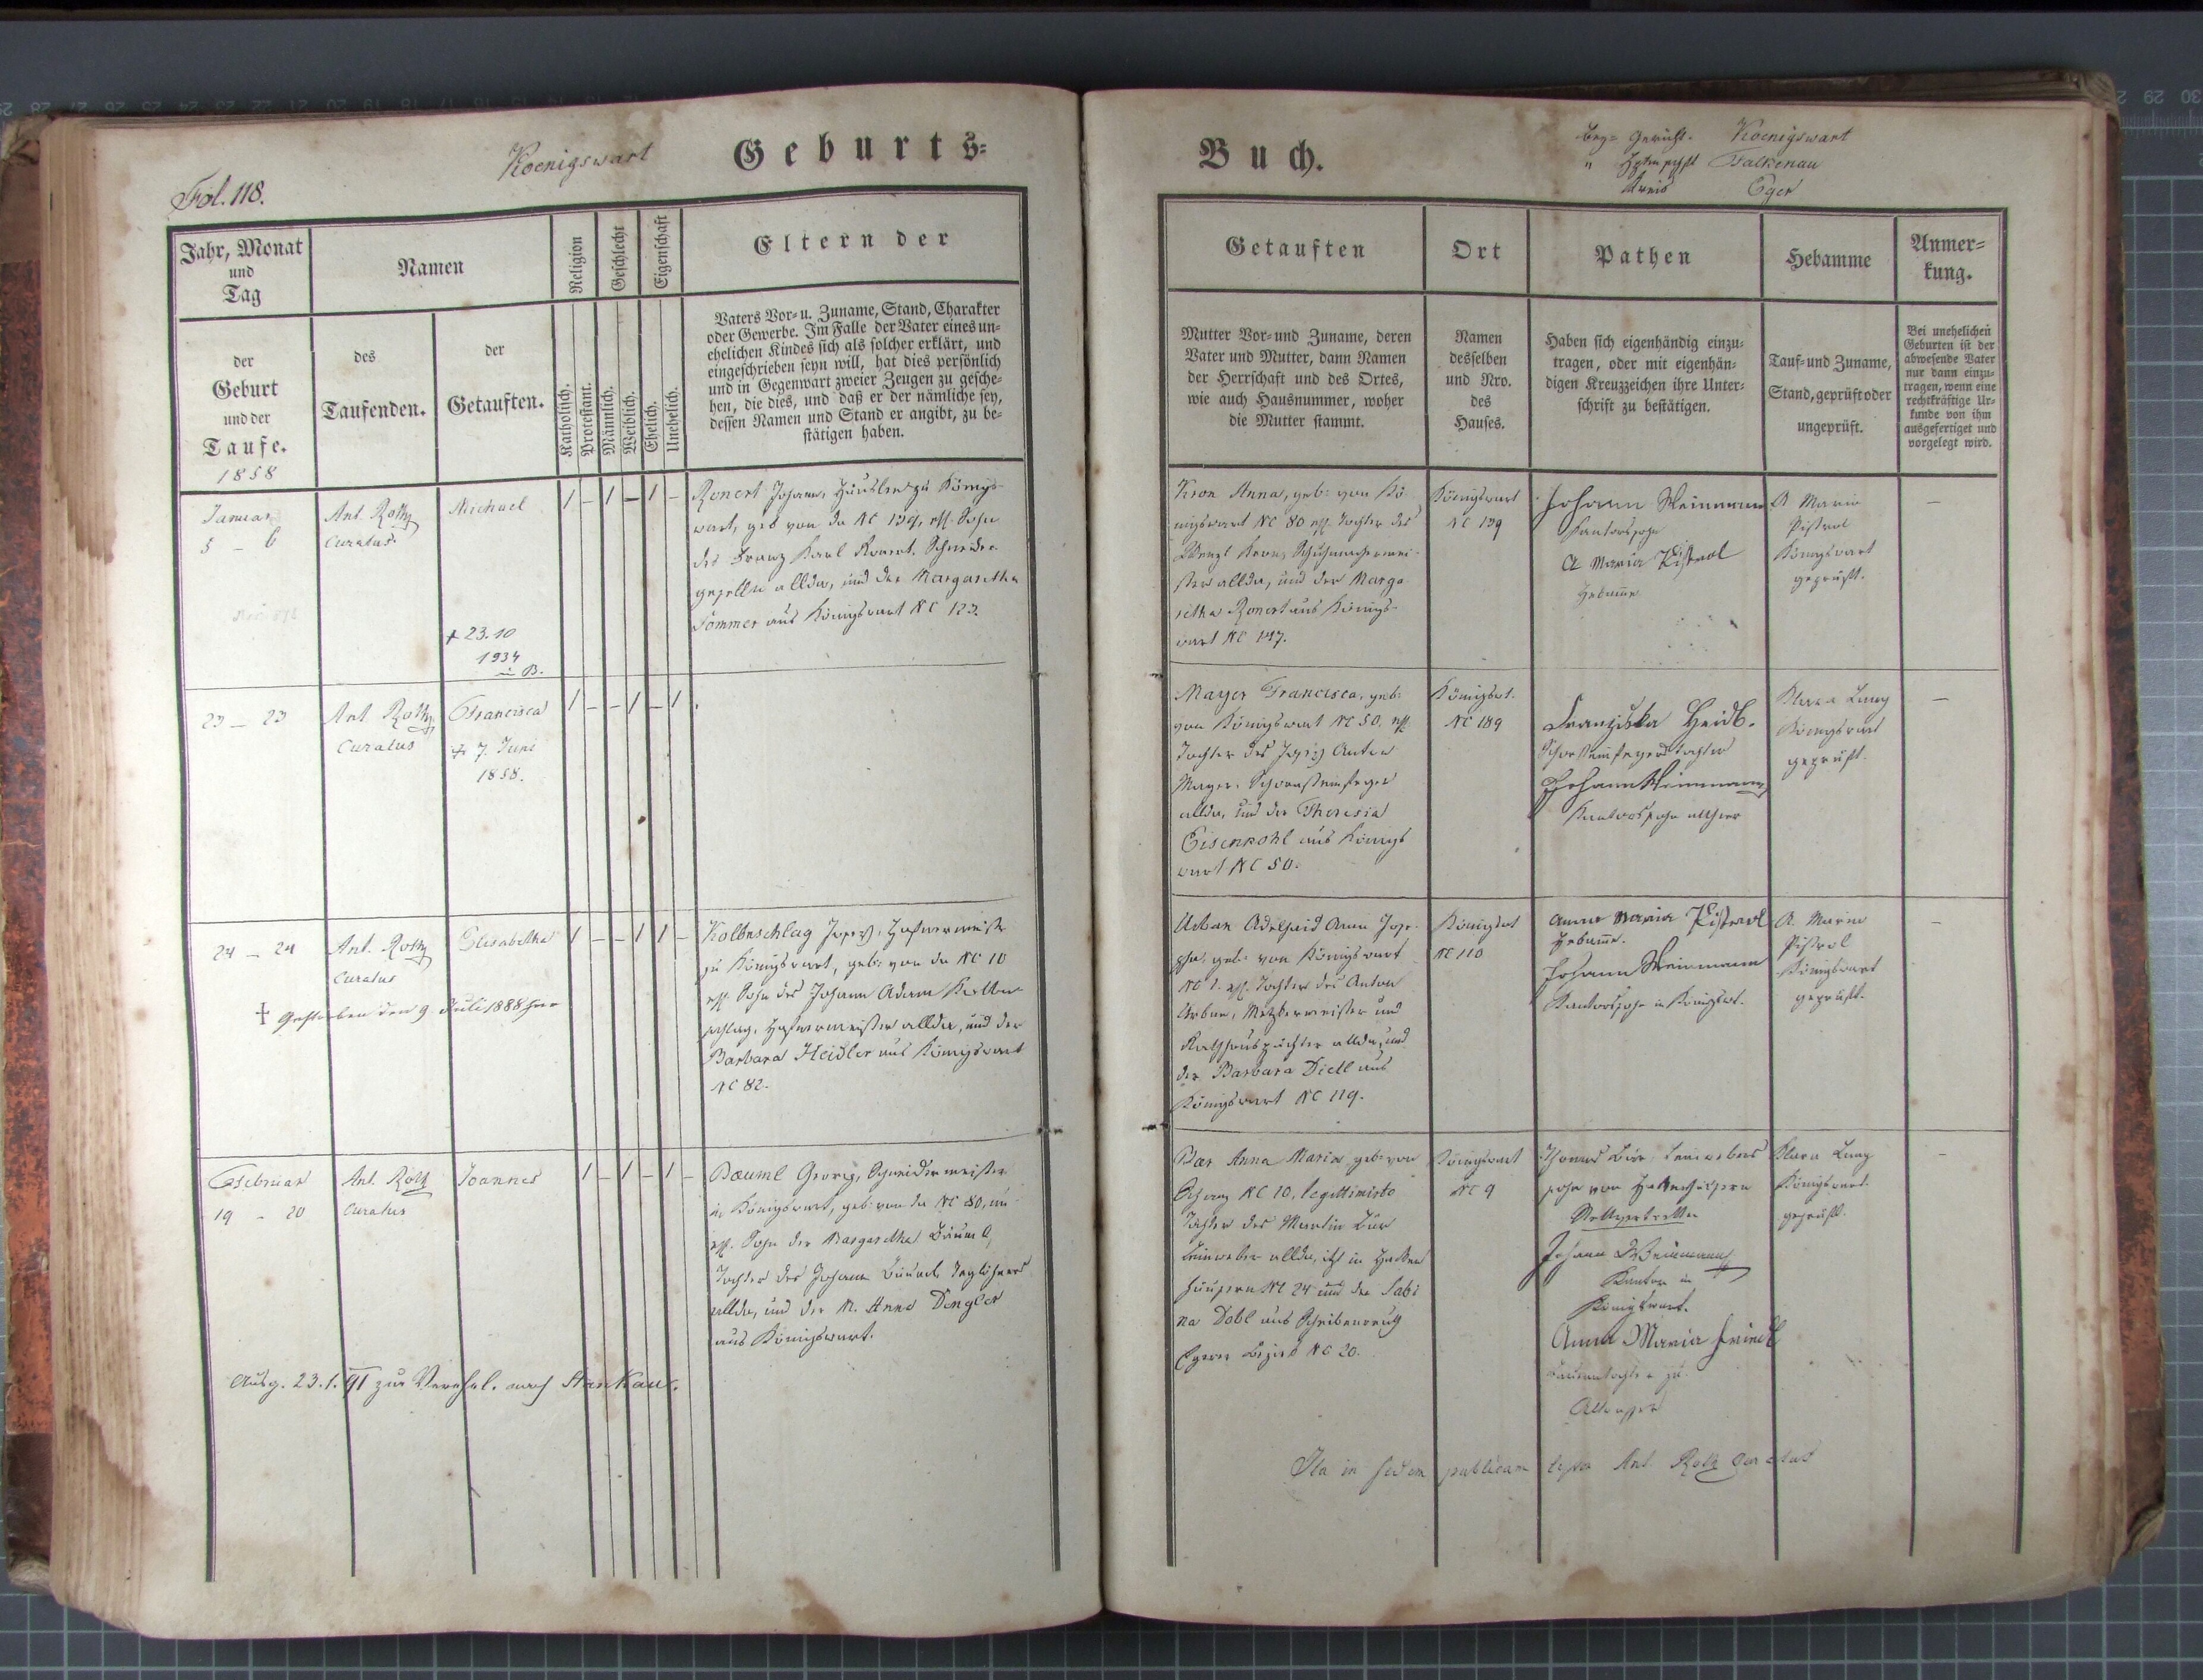 Fol. 118.
Koenigswart
Geburts=
Buch.
Bez= Gericht. Koenigswart
" Falkenau
Kreis Eger
Jahr, Monat
und
Tag
der
Geburt
und der
Taufe.
1858
Namen
des
Taufenden.
der
Getauften.
Religion
Katholisch.
Protestant.
Geschlecht
Männlich.
Weiblich.
Eigenschaft
Ehelich.
Unehelich.
Eltern der
Vaters Vor= u. Zuname, Stand, Charakter
oder Gewerbe. Im Falle der Vater eines un=
ehelichen Kindes sich als solcher erklärt, und
eingeschrieben seyn will, hat dies persönlich
und in Gegenwart zweier Zeugen zu gesche=
hen, die dies, und daß er der nämliche sey,
dessen Namen und Stand er angibt, zu be=
stätigen haben.
Getauften
Mutter Vor= und Zuname, deren
Vater und Mutter, dann Namen
der Herrschaft und des Ortes,
wie auch Hausnummer, woher
die Mutter stammt.
Ort
Namen
desselben
und Nro.
des
Hauses.
Pathen
Haben sich eigenhändig einzu=
tragen, oder mit eigenhän=
digen Kreuzzeichen ihre Unter=
schrift zu bestätigen.
Hebamme
Tauf= und Zuname,
Stand, geprüft oder
ungeprüft.
Anmer=
kung.
Bei unehelichen
Geburten ist der
abwesende Vater
nur dann einzu=
tragen, wenn eine
rechtkräftige Ur=
kunde von ihm
ausgefertiget und
vorgelegt wird.
Januar
5 – 6
Ant. Roth
Curatus.
Michael
+ 23.10
1934
in B.
1 – 1 – 1 –
Ronert Johann, Häusler zu Königs-
wart, geb von da NC 139, ehl. Sohn
des Franz Karl Ronert, Schneider
gesellen allda, und der Margaretha
Sommer aus Königswart NC 123.
Kron Anna, geb: von Kö
nigswart NC 80 ehl. Tochter des
Wenzl Kron, Schuhmachermei-
ster allda, und der Marga
retha Ronert aus Königs-
wart NC 147.
Königswart
NC 139
Johann Weinmann
Kantorssohn
A Maria Pistrol
Hebamme
A Maria
Pistrol
Königswart
geprüft.
–
23 – 23
Ant Roth
Curatus
Francisca
+ 7. Juni
1858.
1 – – 1 – 1
Mayer Francisca, geb:
von Königswart NC 50, ehl.
Tochter des Joseph Anton
Mayer, Schornsteinfeger
allda, und der Theresia
Eisenkohl aus Königs
wart NC 50.
Königswt.
NC 189
Franziska Heidl.
Schorsteinfegerstochter
Johann Weinmann
Kantorssohn allhier
Klara Lung
Königswart
geprüft.
–
24 – 24
Ant. Roth
Curatus
Elisabetha
1 – – 1 1 –
+ Gestorben den 9. Juli 1888 hier
Kolbeschlag Joseph, Hafnermeister
zu Königswart, geb: von da NC 10
ehl. Sohn des Johann Adam Kolbe
schlag, Hafnermeister allda, und der
Barbara Heidler aus Königswart
NC 82.
Urban Adelheid Anna Jose-
pha, geb: von Königswart
NC 1. ehl. Tochter des Anton
Urban, Metzkermeister und
Rathhauspächter allda, und
der Barbara Dietl aus
Königswart NC 119.
Königswt
NC 110
Anna Maria Pistrol
Hebamme.
Johann Weinmann
Kantorssohn in Königswt.
A. Maria
Pistrol
Königswart
geprüft.
–
Februar
19 – 20
Ant. Roth
Curatus
Joannes
1 – 1 – 1 –
Baeuml Georg, Schneidermeister
in Königswart, geb: von da NC 80, un
ehl. Sohn der Margaretha Bäuml,
Tochter des Johann Bäuml, Taglöhners
allda, und der M. Anna Dengler
aus Königswart.
Baer Anna Maria geb: von
NC 10, legittimirte
Tochter des Martin Bär
Leinweber allda, itzt in Hatten
häusern NC 24 und der Sabi
na Dobl aus Scheibenreuth
Egerer Bezirk NC 20.
Königswart
NC 9
Thomas Bär, Leinwebers
sohn von
Stellvertretter
Johann Weinmann
Kantor in
Königswart.
Anna Maria Friedl
Bauerntochter zu
Altwasser
Klara Lung
Königswart
geprüft.
–
Ausg. 23.1.91 zur Verehel. nach Stankau.
Ita in fidem publicam testor Ant. Roth Curatus